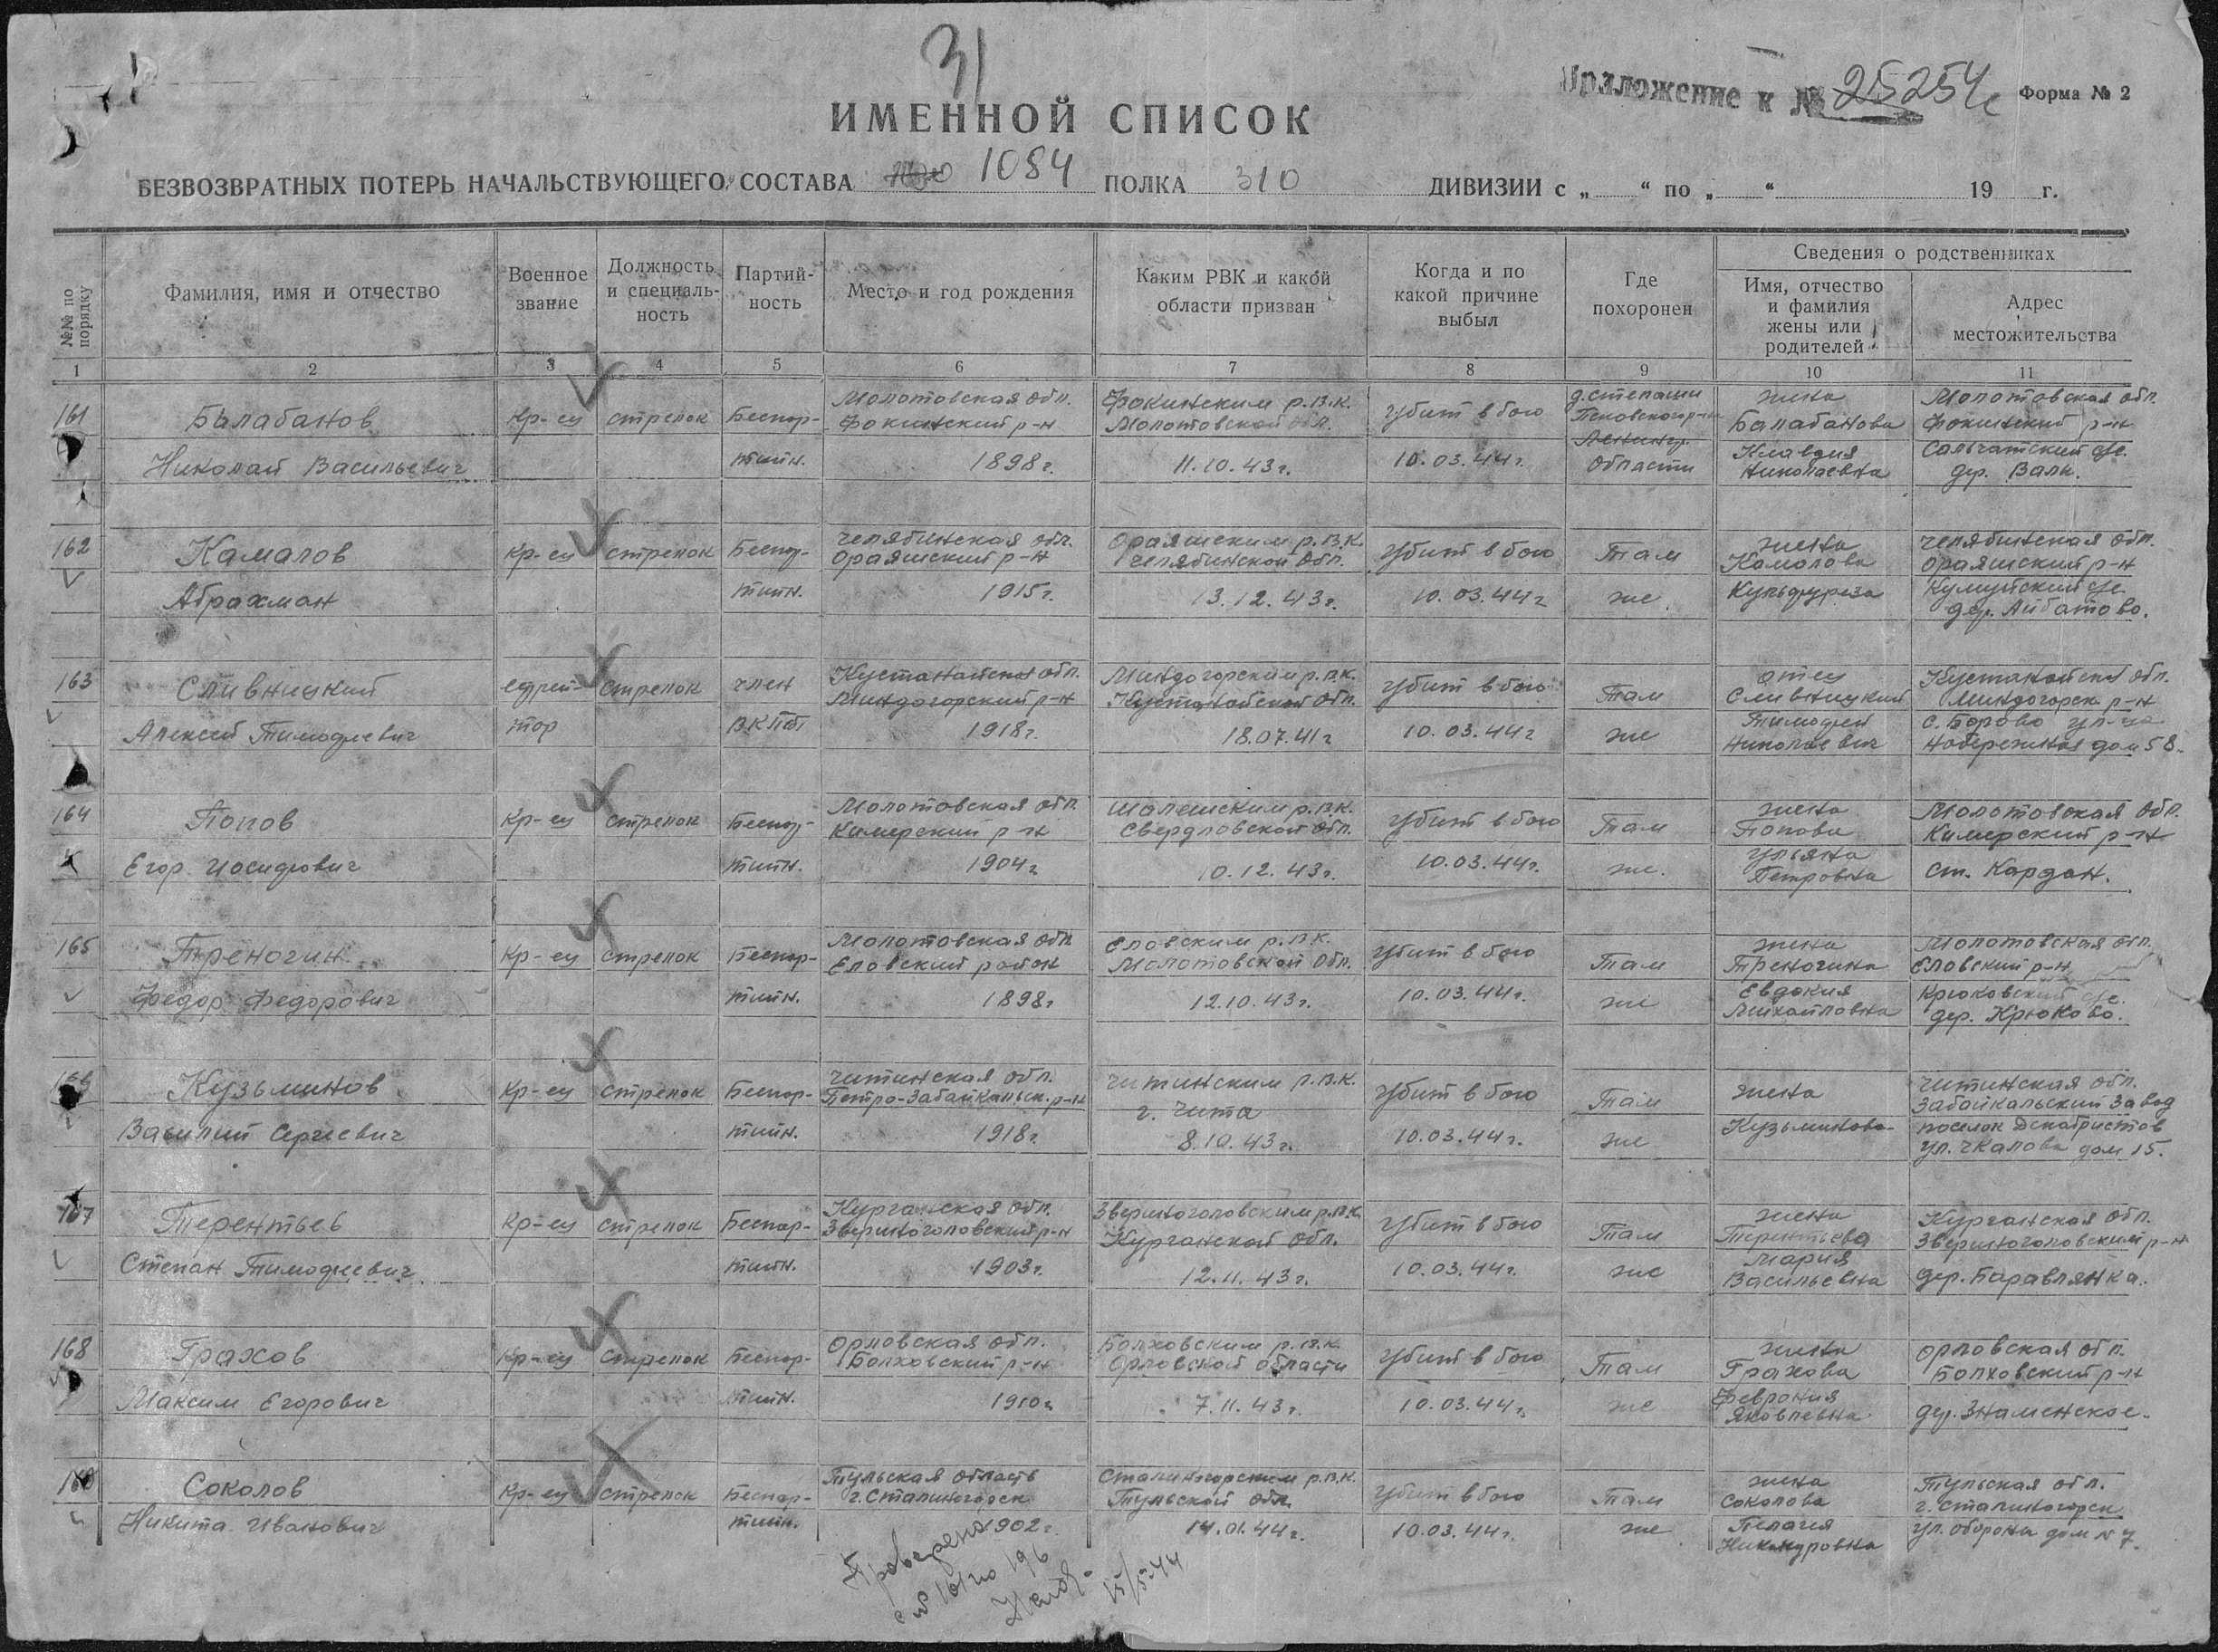 31
Приложение к № 25254с Форма № 2
ИМЕННОЙ СПИСОК
БЕЗВОЗВРАТНЫХ ПОТЕРЬ НАЧАЛЬСТВУЮЩЕГО СОСТАВА 1084 ПОЛКА 310 ДИВИЗИИ с „ “ по „ “ 19 г.
№№ по порядку
Фамилия, имя и отчество
Военное звание
Должность и специаль-ность
Партий-ность
Место и год рождения
Каким РВК и какой области призван
Когда и по какой причине выбыл
Где похоронен
Сведения о родственниках
Имя, отчество и фамилия жены или родителей
Адрес местожительства
1 2 3 4 5 6 7 8 9 10 11
161 Балабанов кр-ец стрелок Беспар- Молотовская обл. Фокинский р-н Фокинским р.в.к. Молотовской обл. убит в бою д. Степаши Псковского р-на жена Балабанова Молотовская обл. Фокинский р-н
Николай Васильевич тийн. 1898г. 11.10.43г. 10.03.44г. Ленингр. области Клавдия Николаевна дер. Вали.
162 Камалов кр-ец стрелок Беспар- Челябинская обл. Ораяшский р-н Ораяшским р.в.к. Челябинской обл. убит в бою Там жена Камалова Челябинская обл. Ораяшский р-н
Абрахман тийн. 1915г. 13.12.43г. 10.03.44г же. Кумуйский с/с. дер. Айбатово.
163 Сливницкий ефрей- стрелок член Кустанайская обл. Миндогорский р-н Миндогорским р.в.к. Кустанайской обл. убит в бою Там отец Сливницкий Кустанайская обл. Миндогорск р-н
Алексей Тимофеевич тор ВКПб 1918г. 18.07.41г 10.03.44г же Тимофей Николаевич с. Борово ул-ца Набережная дом 58.
164 Попов кр-ец стрелок Беспар- Молотовская обл. Кишерский р-н Шалешским р.в.к. Свердловской обл. убит в бою Там жена Попова Молотовская обл. Кишерский р-н
Егор Иосифович тийн. 1904г 10.12.43г. 10.03.44г. же. Ульяна Петровна ст. Кордон.
165 Треногин кр-ец стрелок Беспар- Молотовская обл Еловский район Еловским р.в.к. Молотовской обл. убит в бою Там жена Треногина Молотовская обл. Еловский р-н
Федор Федорович тийн. 1898г 12.10.43г. 10.03.44г. же Евдокия Михайловна Крюковский с/с. дер. Крюково.
166 Кузьминов кр-ец стрелок Беспар- Читинская обл. Петро-Забайкальск. р-н Читинским р.в.к. г. Чита убит в бою Там жена Читинская обл. Забайкальский завод
Василий Сергеевич тийн. 1918г. 8.10.43г. 10.03.44г. же Кузьминова поселок Декабристов ул. Чкалова дом 15.
167 Терентьев кр-ец стрелок Беспар- Курганская обл. Звериноголовский р-н Звериноголовским р.в.к. Курганской обл. убит в бою Там жена Терентьева Курганская обл. Звериноголовский р-н
Степан Тимофеевич тийн. 1903г. 12.11.43г. 10.03.44г. же Мария Васильевна дер. Баравлянка.
168 Грахов кр-ец стрелок Беспар- Орловская обл. Болховский р-н Болховским р.в.к. Орловской области убит в бою Там жена Грахова Орловская обл. Болховский р-н
Максим Егорович тийн. 1910г 7.11.43г. 10.03.44г. же Феврония Яковлевна дер. Знаменское.
169 Соколов кр-ец стрелок Беспар- Тульская область г. Сталиногорск Сталиногорским р.в.к. Тульской обл. убит в бою Там жена Соколова Тульская обл. г. Сталиногорск
Никита Иванович тийн. 1902г. 14.01.44г. 10.03.44г. же Пелагея Никандровна ул. обороны дом № 7.
Проверено
с № 161 по 196
15/5-44